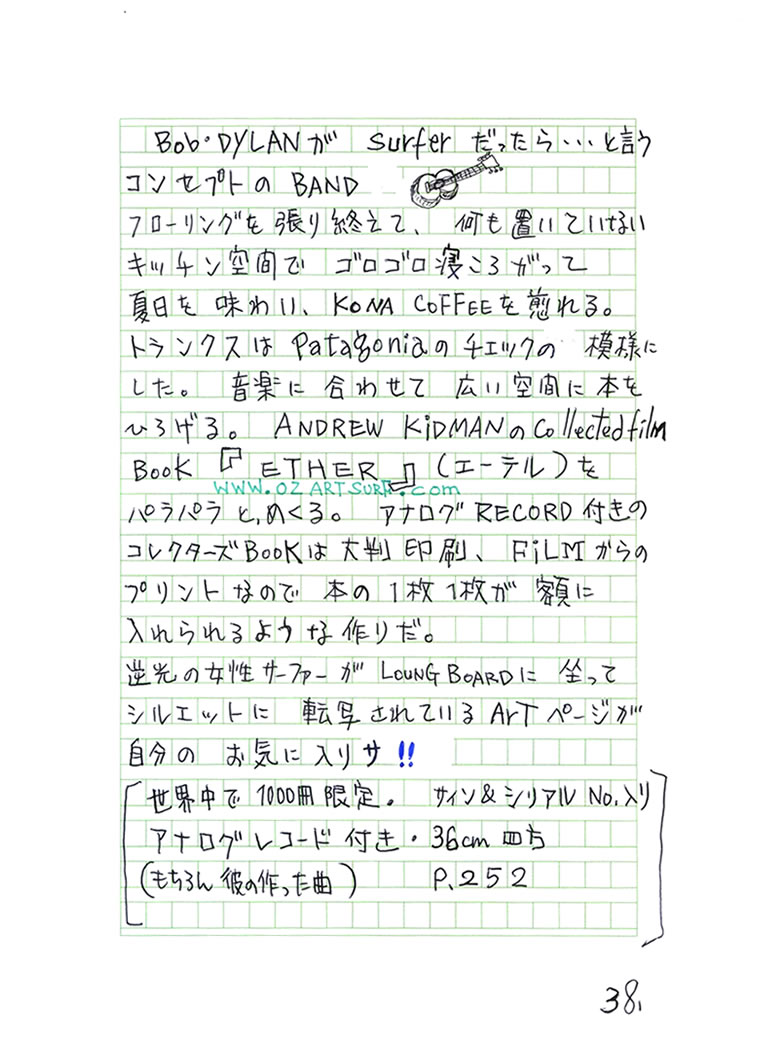 Bob・DYLANが surfer だったら・・・と言う
コンセプトの BAND
フローリングを張り終えて、 何も置いていない
キッチン空間で ゴロゴロ寝ころがって
夏日を 味わい、KONA COFFEEを煎れる。
トランクスは Patagoniaのチェックの 模様に
した。 音楽に 合わせて 広い空間に 本を
ひろげる。 ANDREW KiDMANのCollected film
BooK 『ETHER』(エーテル)を
WWW.OZARTSURF.com
パラパラ と,めくる。 アナログRECORD付きの
コレクターズBooKは大判印刷、FiLMからの
プリントなので 本の1枚1枚が 額に
入れられるような作りだ。
逆光の女性サーファーが LOUNG BOARDに 坐って
シルエットに 転写されているArTページが
自分の お気に入りサ!!
世界中で1000冊限定。 サイン&シリアルNo.入り
アナログレコード付き・36cm四方
(もちろん彼の作った曲) P.252
38.